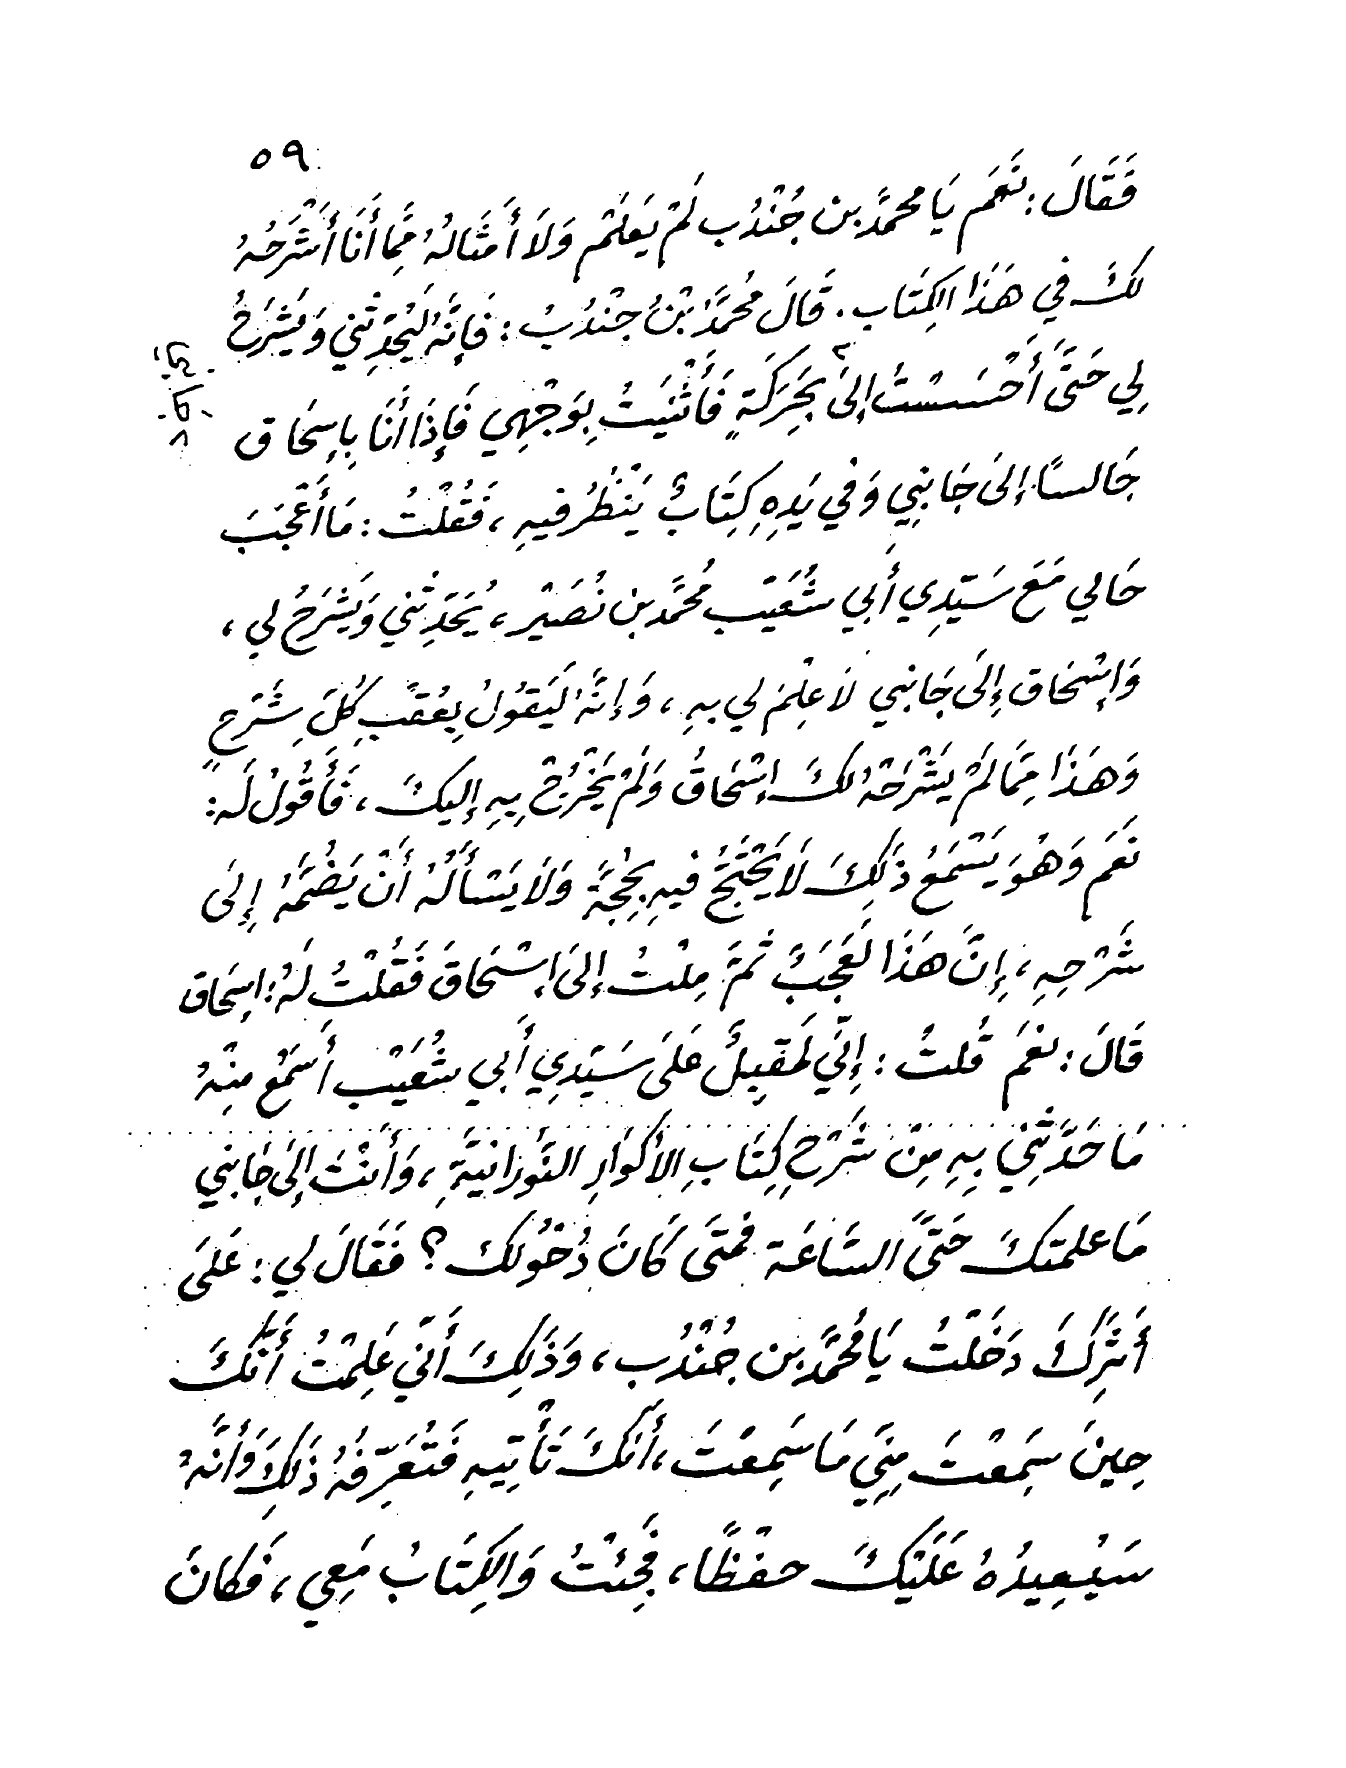 ٥٩
فَقَالَ: نَعَم يَا محمدَّ بن جُنْدُب لَمْ يَعلَمْ وَلاَ أَمثَالهُ مِمَّا أَنَا أَشْرَحُهُ
لكَ في هَذَا الكِتَاب. قَالَ مُحمَّدُ بْنُ جنْدُبُ: فَإِنَّهُ لَيُحَدِّثني وَيَشْرَحُ
لِي حَتَّى أَحْسَسْتُ إِلىَ بِحَرَكَةٍ فَأَثْنَيتُ بِوَجْهِي فَإِذَا أَنَا بِإِسحَاق
جَالساً إِلىَ جَانبِي وَفي يَدِهِ كِتَابٌ يَنْظُرُ فيهِ، فَقُلْتُ: مَا أَعْجَبَ
حَالي مَعَ سَيّدِي أَبي شُعَيْب مُحمَّد بن نُصَيْر، يُحَدِّثني وَيَشْرَحُ لي،
وَإِسْحَاق إِلىَ جَانبي لاَ عِلْمَ لي بهِ، وَإِنَّهُ لَيَقُولُ بِعُقبِ كُلِّ شَرْحٍ
وَهَذَا مِمَّا لَمْ يَشْرَحْهُ لكَ إِسْحَاقُ وَلَمْ يَخْرُجْ بِهِ إِليكَ، فَأَقُولُ لَه:
نَعَم وَهُوَ يَسْمَعُ ذَلِكَ لاَ يَحْتَجُّ فيهِ بِحُجَّةٍ وَلاَ يَسْأَلُهُ أَنْ يَضُمَّهُ إِلىَ
شَرْحِهِ، إِنَّ هَذَا لَعَجَبٌ ثمَّ مِلْتُ إِلىَ إِسْحَاقَ فَقُلْتُ لَهُ: إسحَاق
قَالَ: نعْمَ قُلتُ: إِنّي لَمقبِلٌ عَلىَ سَيّدِي أَبي شُعَيْب أَسمَعُ مِنْهُ
مَا حَدَّثَنِي بِهِ مِنْ شَرْحِ كِتَابِ الأَكْوَارِ النَّورَانيَّةِ، وَأَنتَ إِلىَ جَانبي
مَا علمتكَ حَتَّى السَّاعَة فمتَى كَانَ دُخُولكَ؟ فَقَالَ لي: عَلىَ
أَثَرِكَ دَخَلْتُ يَا مُحمَّد بن جُنْدُب، وَذَلِكَ أَنّي عَلِمْتُ أَنَّكَ
حِينَ سَمِعْتَ مِنّي مَا سَمِعْتَ، أَنّكَ تَأْتِيهِ فَتُعَرِّفُهُ ذَلِكَ وَأَنَّهُ
سَيُعِيدُهُ عَلَيْكَ حفْظًا، فَجِئتُ وَالكِتَابُ مَعِي، فَكانَ